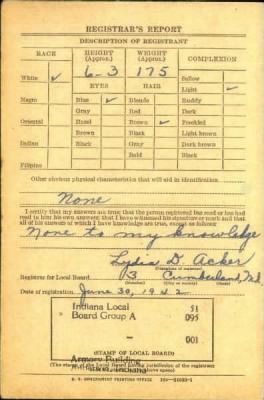 REGISTRAR'S REPORT
DESCRIPTION OF REGISTRANT
RACE HEIGHT (Approx.) WEIGHT (Approx.) COMPLEXION
White ✓ 6-3 175 Sallow
EYES HAIR Light ✓
Negro Blue ✓ Blonde Ruddy
Gray Red Dark
Oriental Hazel Brown ✓ Freckled
Brown Black Light brown
Indian Black Gray Dark brown
Bald Black
Filipino
Other obvious physical characteristics that will aid in identification
None
I certify that my answers are true; that the person registered has read or has had
read to him his own answers; that I have witnessed his signature or mark and that
all of his answers of which I have knowledge are true, except as follows:
None to my knowledge
Lydia D. Acker
(Signature of registrar)
Registrar for Local Board 3 Cumberland, Md.
(Number) (City or county) (State)
Date of registration June 30, 1942
Indiana Local 51
Board Group A 095
001
Armory Building
Indiana
(STAMP OF LOCAL BOARD)
(The stamp of the Local Board having jurisdiction of the registrant
U. S. GOVERNMENT PRINTING OFFICE